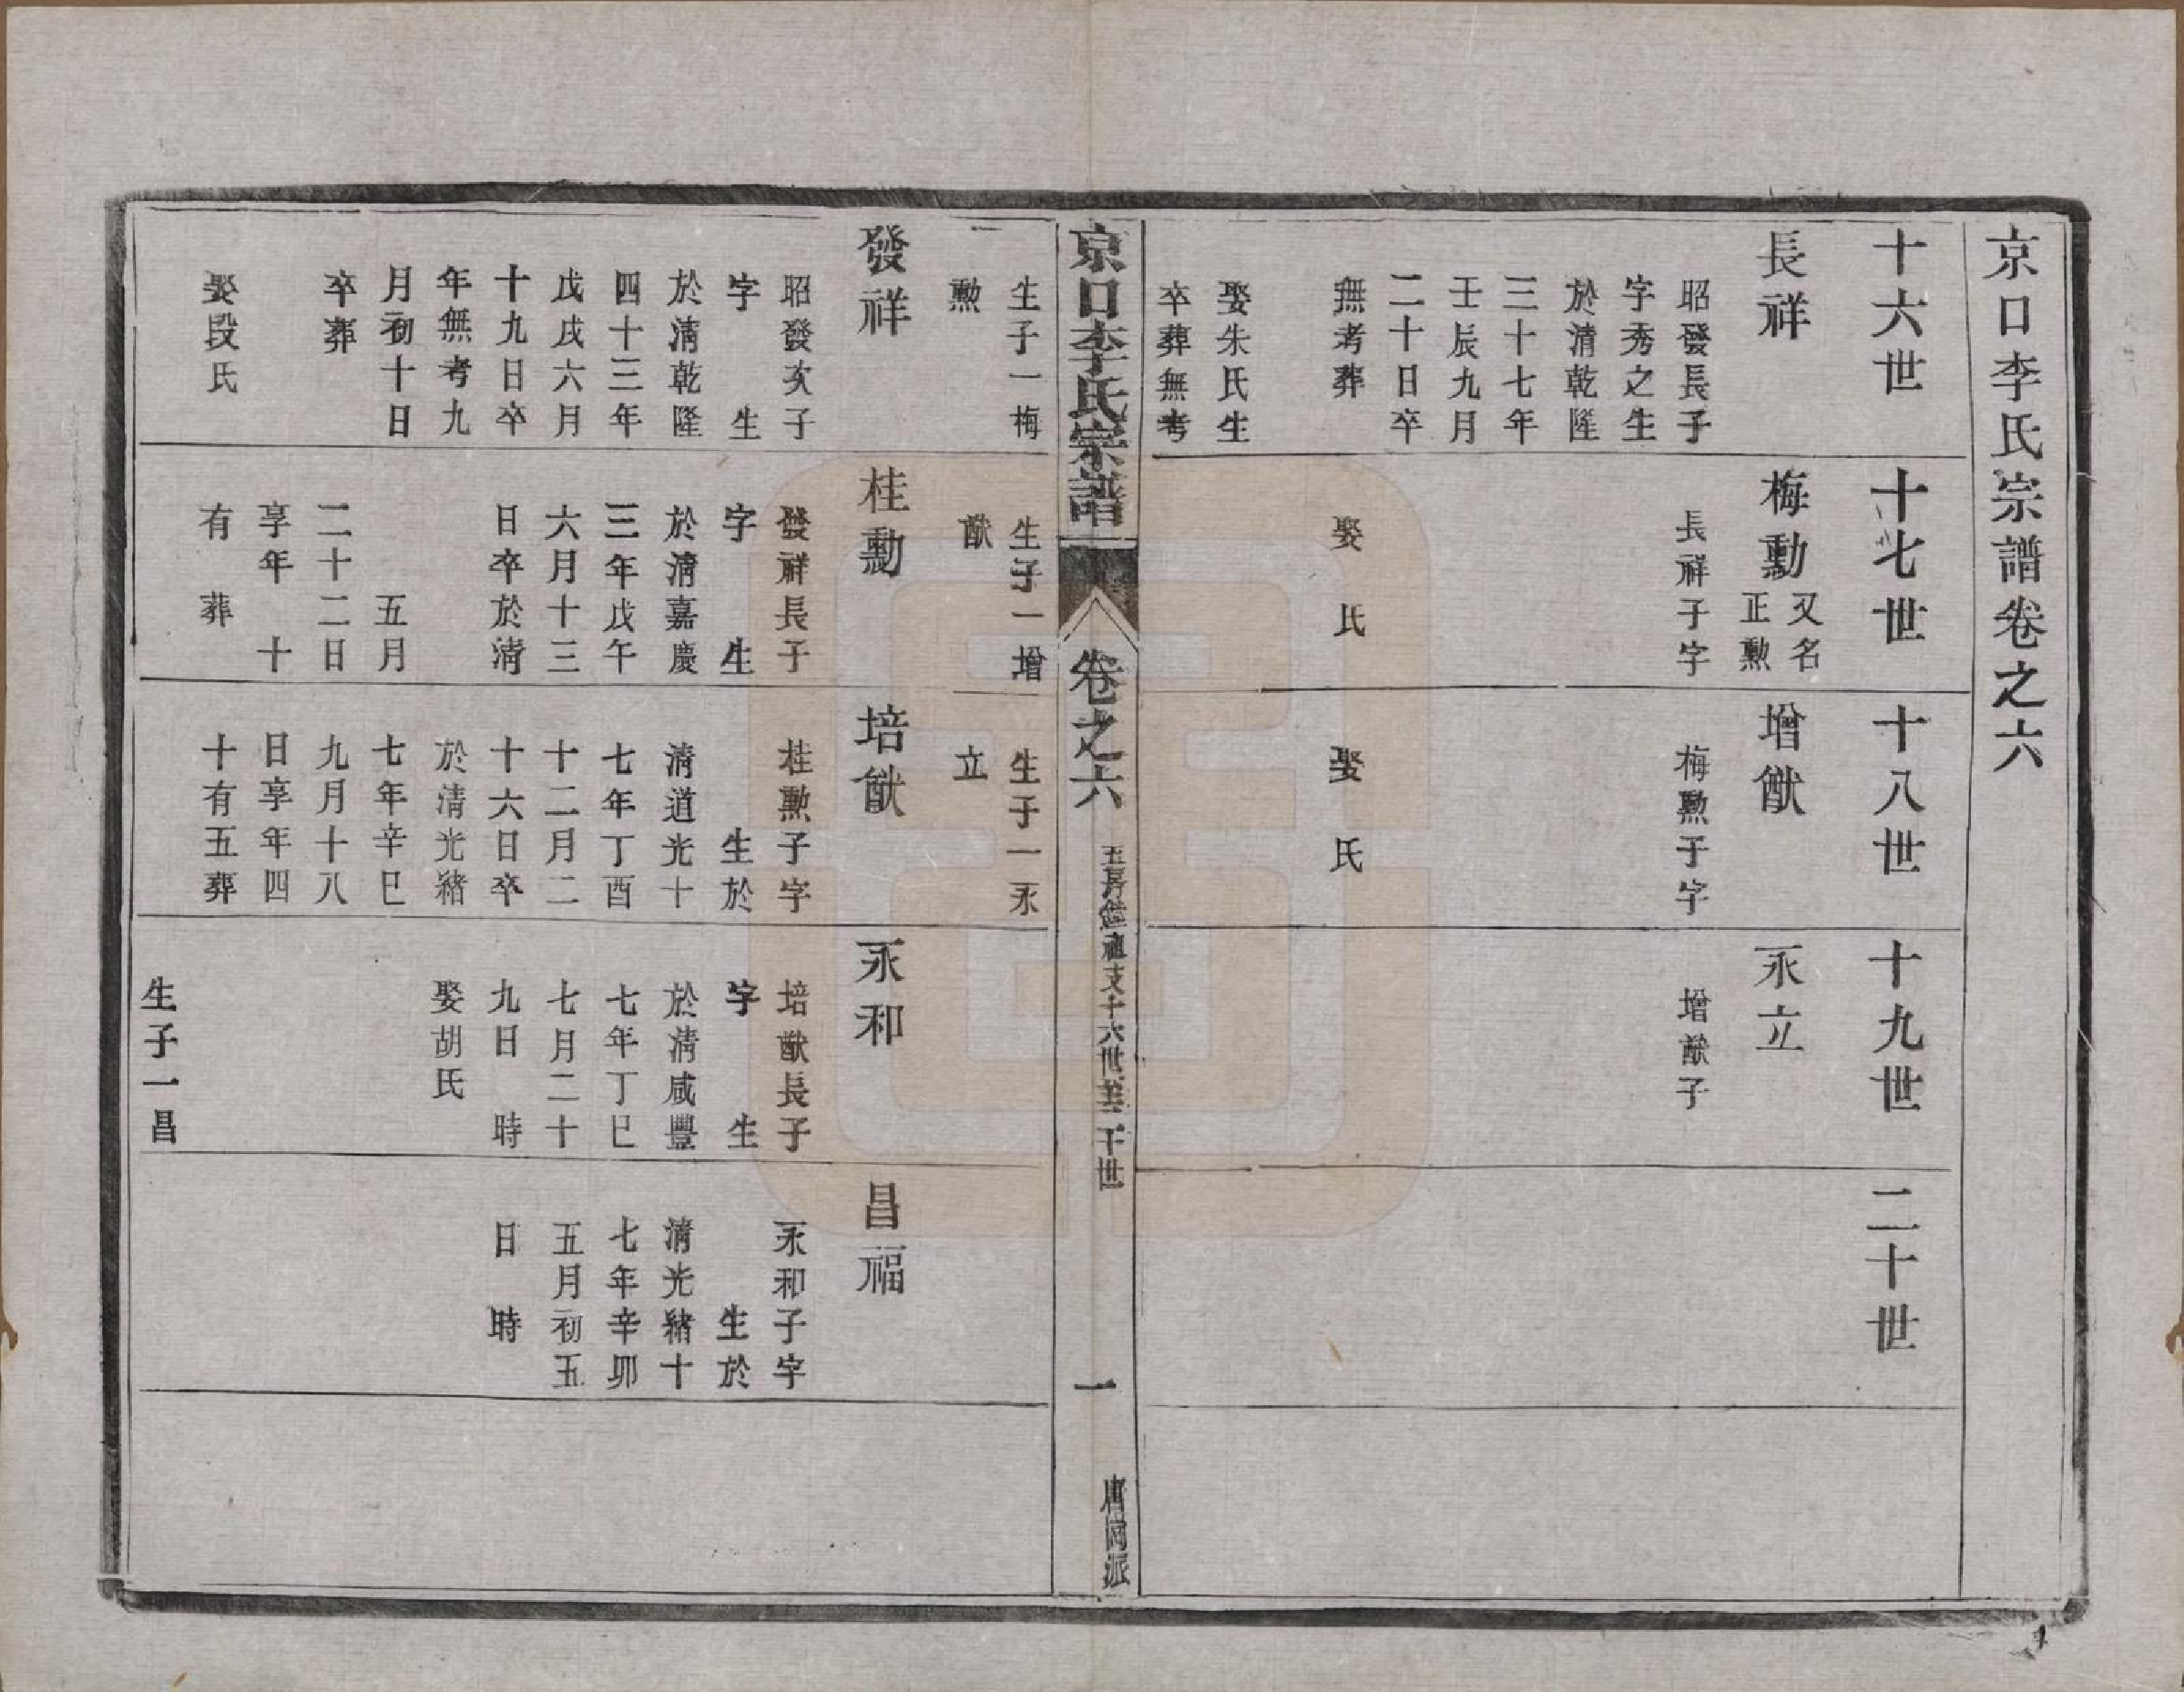 京口李氏宗譜卷之六
十六世
長祥
昭發長子
字秀之生
於清乾隆
三十七年
壬辰九月
二十日卒
無考葬
娶朱氏生
卒葬無考
十七世
梅勳
又名
正勲
長祥子字
娶 氏
十八世
增猷
梅勲子字
娶 氏
十九世
永立
增猷子
二十世
京口李氏宗譜
卷之六
支十六世至二十世
一
唐岡派
生子一梅
勲
生子一增
猷
生子一永
立
發祥
昭發次子
字 生
於清乾隆
四十三年
戊戌六月
十九日卒
年無考九
月初十日
卒葬
娶段氏
桂勳
發祥長子
字 生
於清嘉慶
三年戊午
六月十三
日卒於清
五月
二十二日
享年 十
有 葬
培猷
桂勲子字
生於
清道光十
七年丁酉
十二月二
十六日卒
於清光緒
七年辛巳
九月十八
日享年四
十有五葬
永和
培猷長子
字 生
於清咸豐
七年丁巳
七月二十
九日 時
娶胡氏
生子一昌
昌福
永和子字
生於
清光緒十
七年辛卯
五月初五
日 時